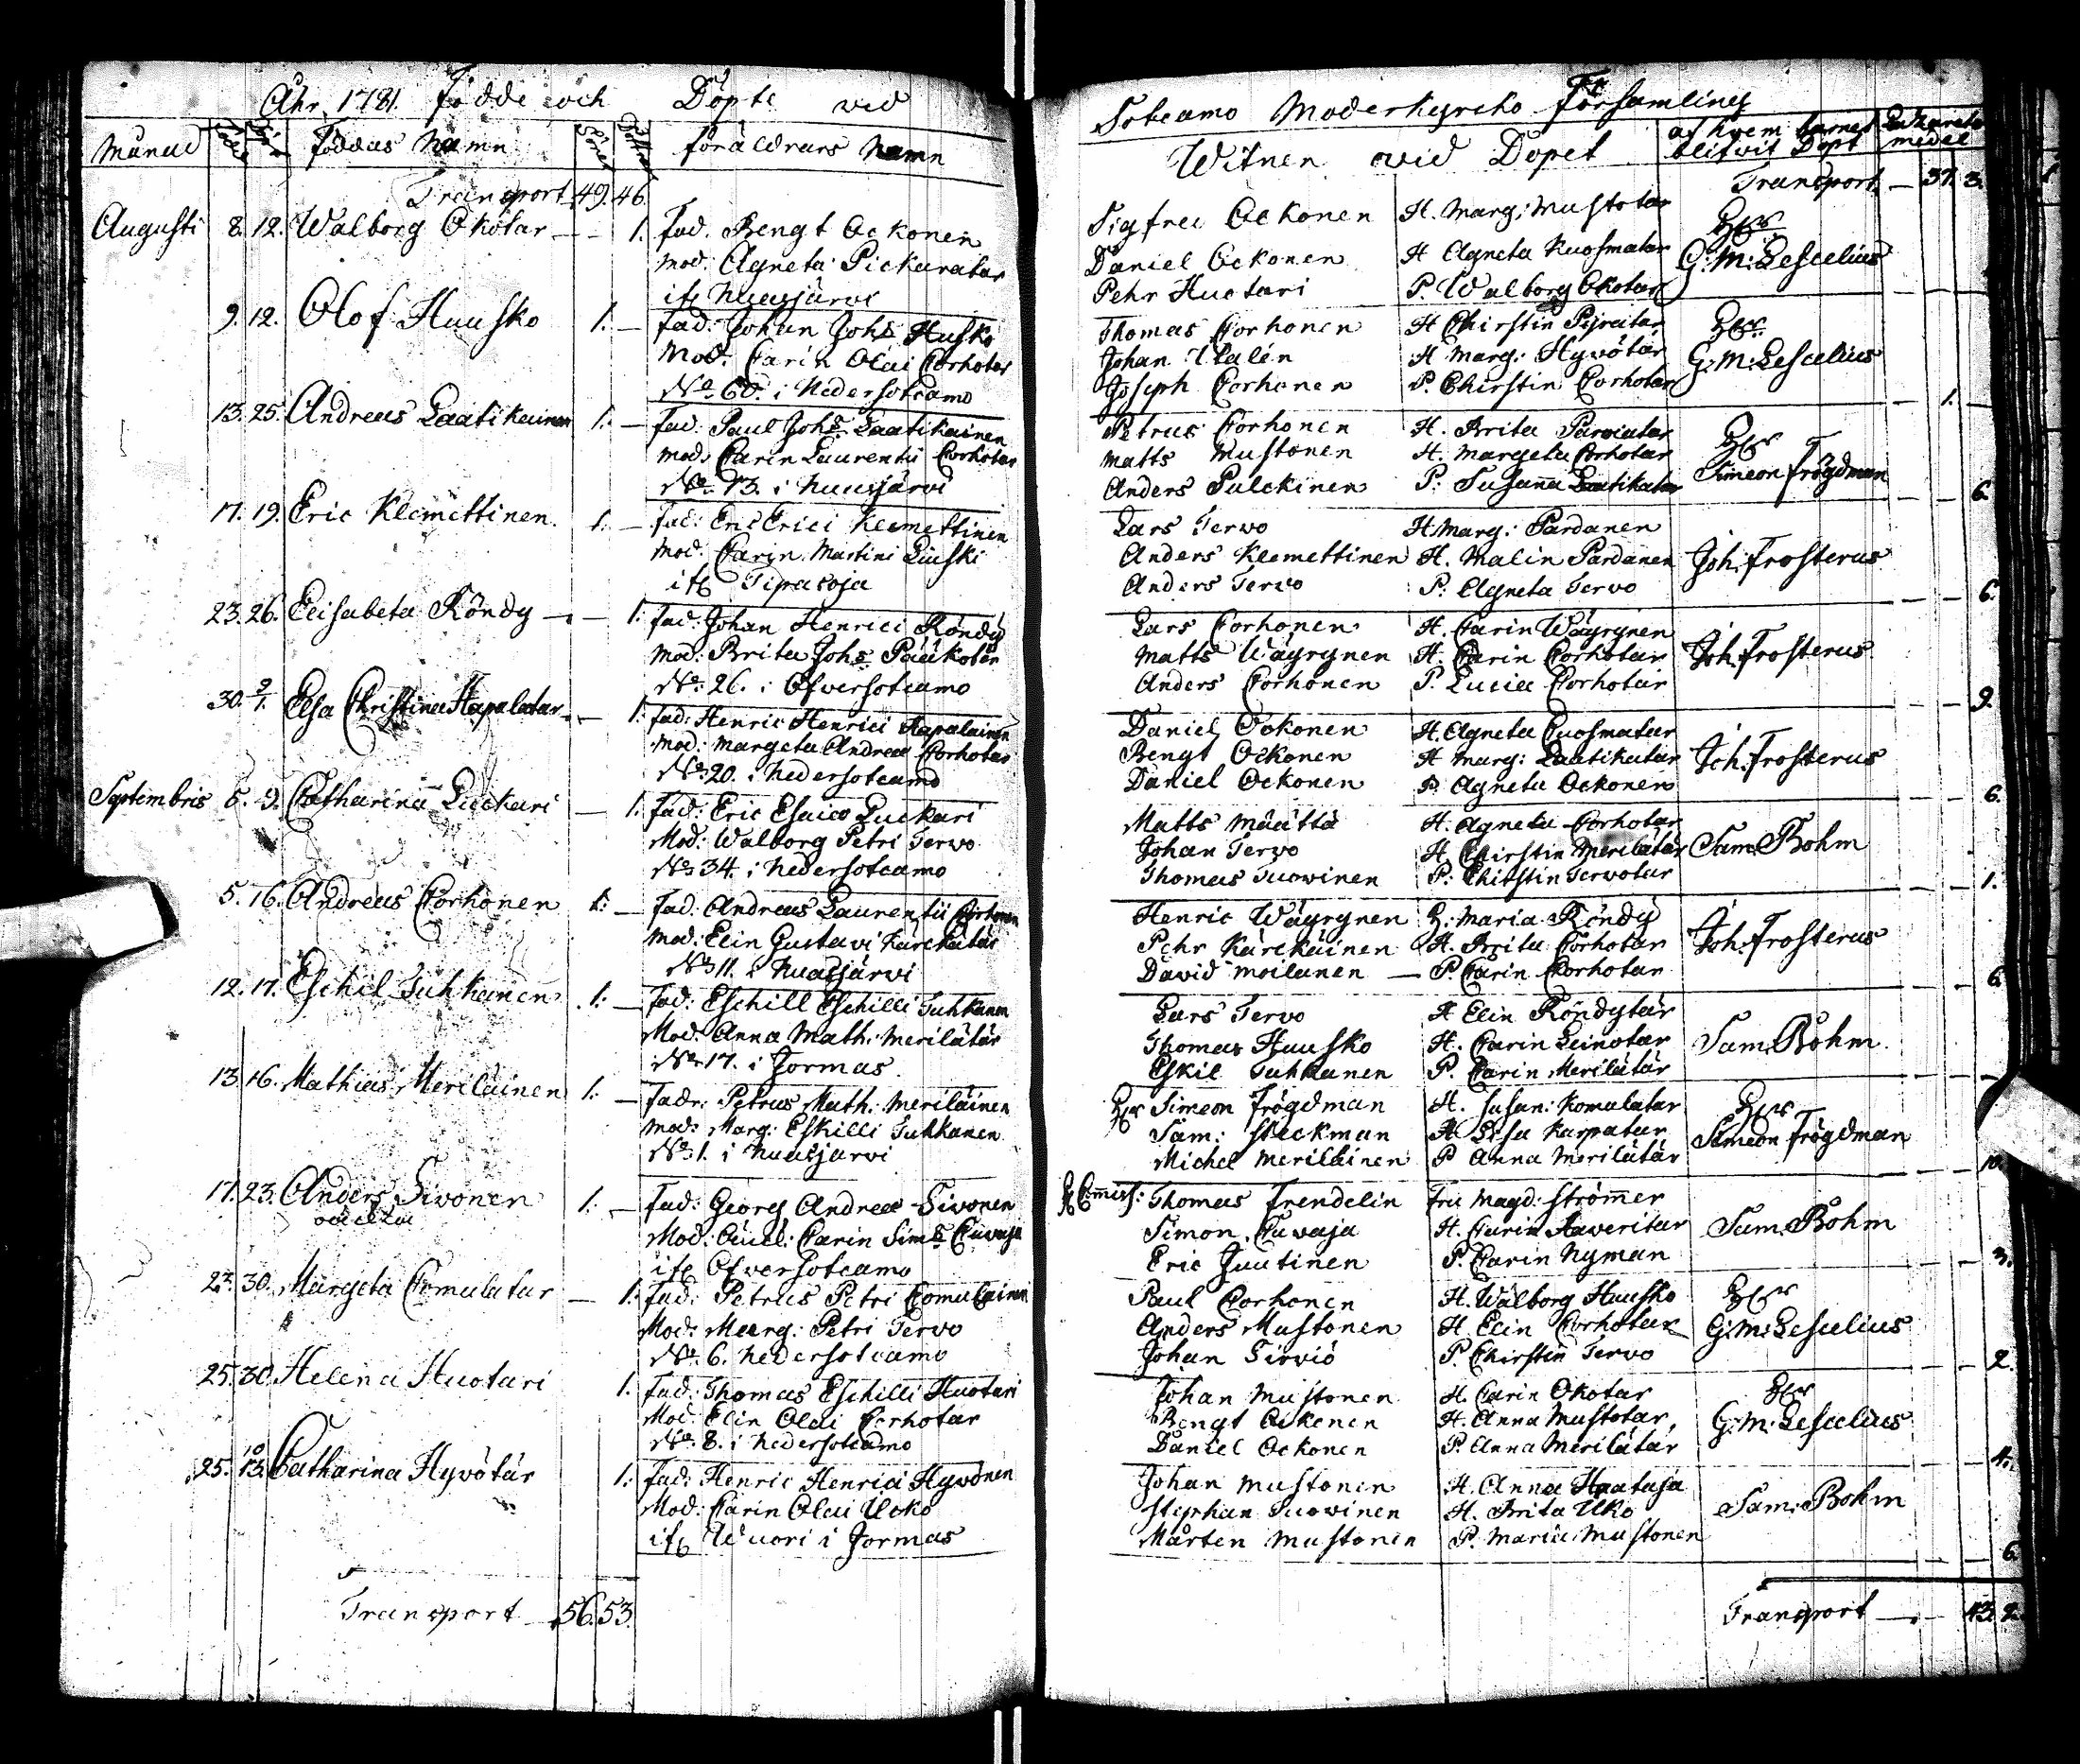 Åhr 1781. Födde och Döpte vid
Månad Födde Döpte Föddas Namn Söner Döttrar Föräldrars Namn
Transport 49. 46.
Augusti 8. 12. Walborg Okotar — 1. Fad. Bengt Ockonen
Mod: Agneta Pickaratar
ifr Nuasjärvi
9. 12. Olof Huusko 1. — Fad: Johan Johs Husko
Mod: Carin Olai Corhotar
No 60. i Nedersotcamo
13. 25. Andreas Laatikainen 1. — Fad: Paul Johs Laatikainen
Mod: Carin Laurentii Corhotar
No 13. i Nuasjärvi
17. 19. Eric Klemettinen. 1. — Fad: Eric Erici Klemettinen
Mod: Carin Martini Liuski
ifr Tipasoja
23. 26. Elisabeta Röndy — 1. Fad: Johan Henrici Röndy
Mod: Brita Johs Pääkotar
No 26. i Ofversotcamo
30. 9/1. Elsa Christina Hapalatar — 1. Fad: Henric Henrici Hapalainen
Mod: Margeta Andreae Corhotar
No 20. i Nedersotcamo
Septembris 5. 9. Catharina Luckari — 1. Fad: Eric Esaice Luckari
Mod: Walborg Petri Tervo
No 34. i Nedersotcamo
5. 16. Andreas Corhonen 1. — Fad: Andreas Laurentii Corhonen
Mod: Elin Gustavi Kärckätär
No 11. i Nuasjärvi
12. 17. Eschil Tuhkanen 1. — Fad: Eschill Eschilli Tuhkanen
Mod: Anna Math: Merilätär
No 17. i Jormas
13. 16. Mathias Meriläinen 1. — Fadr: Petrus Math: Meriläinen
Mod: Marg: Eskilli Tuhkanen
No 1. i Nuasjärvi
17. 23. Anders Sivonen 1. — Fad: Georg Andreae Sivonen
oäckta
Mod: Carin Sims Cuvaja
ifr Ofversotcamo
23. 30. Margeta Comulatar — 1. Fad: Petrus Petri Comulainen
Mod: Marg: Petri Tervo
No 6. Nedersotcamo
25. 30. Helena Huotari 1. Fad: Thomas Eschilli Huotari
Mod: Elin Olai Corhotar
No 8. i Nedersotcamo
25. 10/13. Catharina Hyvötär 1. Fad: Henric Henrici Hyvönen
Mod: Carin Olai Ucko
ifr Wuori i Jormas
Transport 56. 53.
Sotcamo Moderkyrcko Församling
Witnen vid Dopet af hvem barnet blifvit Döpt medel
Transport — 37. 3.
Sigfrid Ockonen H. Marg: Mustotar
Daniel Ockonen H Agneta Kuosmatar G: M: Lescelius
Pehr Huotari P. Walborg Okotar
Thomas Corhonen H Chirstin
Johan Ulalen H Marg: Hyvötär G: M: Lescelius
Joseph Corhonen P. Chirstin Corhotar 1.
Petrus Corhonen H. Brita Parviatar
Matts Mustonen H. Margeta Corhotar Simeon Frögdman
Anders Pulckinen P: Susanna Laatikatar 6.
Lars Tervo H Marg: Pardanen
Anders Klemettinen H. Malin Pardanen Joh: Frosterus
Anders Tervo P. Agneta Tervo 6.
Lars Corhonen H. Carin Wäyrynen
Matts Wäyrynen H. Carin Corhotar Joh: Frosterus
Anders Corhonen P. Lucia Corhotar 9.
Daniel Ockonen H. Agneta Cuosmatar
Bengt Ockonen H Marg: Laatikatar Joh: Frosterus
Daniel Ockonen P. Agneta Ockonen 6.
Matts Määttä H. Agneta Corhotar
Johan Tervo H. Chirstin Merilätär Sam: Bohm
Thomas Tuovinen P: Chirstin Tervotar 1.
Henric Wäyrynen H: Maria Röndy
Pehr Kärckäinen H. Brita Corhotar Joh: Frosterus
David Moilanen — P. Carin Corhotar 6.
Lars Tervo H Elin Röndytär
Thomas Huusko H. Carin Leinotar Sam: Bohm
Eskil Tuhkanen P. Carin Merilätär
Simeon Frögdman H. Susan: Komulatar
Sam: Steckman H Elsa Karpatar Simeon Frögdman
Michel Meriläinen P Anna Merilätär 10.
Thomas Frendelin Fru Magd: Strömer
Simon Cuvaja H. Carin Haveritar Sam: Bohm
Eric Juutinen P. Carin Nyman 3.
Paul Corhonen H. Walborg Huusko
Anders Mustonen H Elin Corhotar G: M: Lescelius
Johan Sirviö P. Chirstin Tervo 2.
Johan Mustonen H. Carin Okotar
Bengt Ockonen H. Anna Mustotar G: M: Lescelius
Daniel Ockonen P. Anna Merilätär 4.
Johan Mustonen H. Anna Haataja
Stephan Tuovinen H. Brita Uko Sam: Bohm
Mårten Mustonen P. Maria Mustonen 6.
Transport — 43. 2.